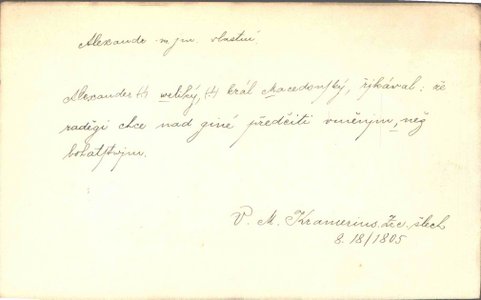 Alexander m. jm. vlastní.
Alexander (:) weliký, (:) král Macedonský, řjkáwal: že
raděgi chce nad giné předčiti vměnjm, než
bohatstwjm.
V. M. Kramerius. Zrc. šlech
8. 18/1805